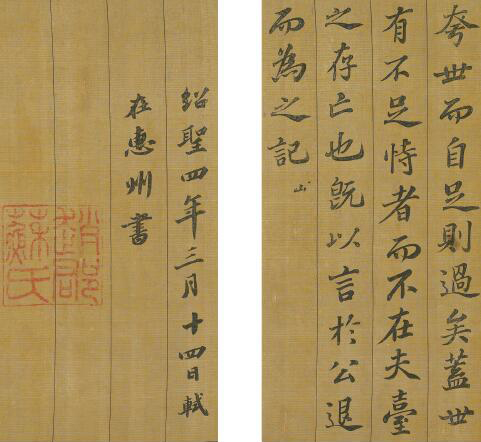 夸世而自足則過矣蓋世
有不足恃者而不在夫臺
之存亡也既以言於公退
而為之記
紹聖四年三月十四日軾
在惠州書
趙郡
蘇氏